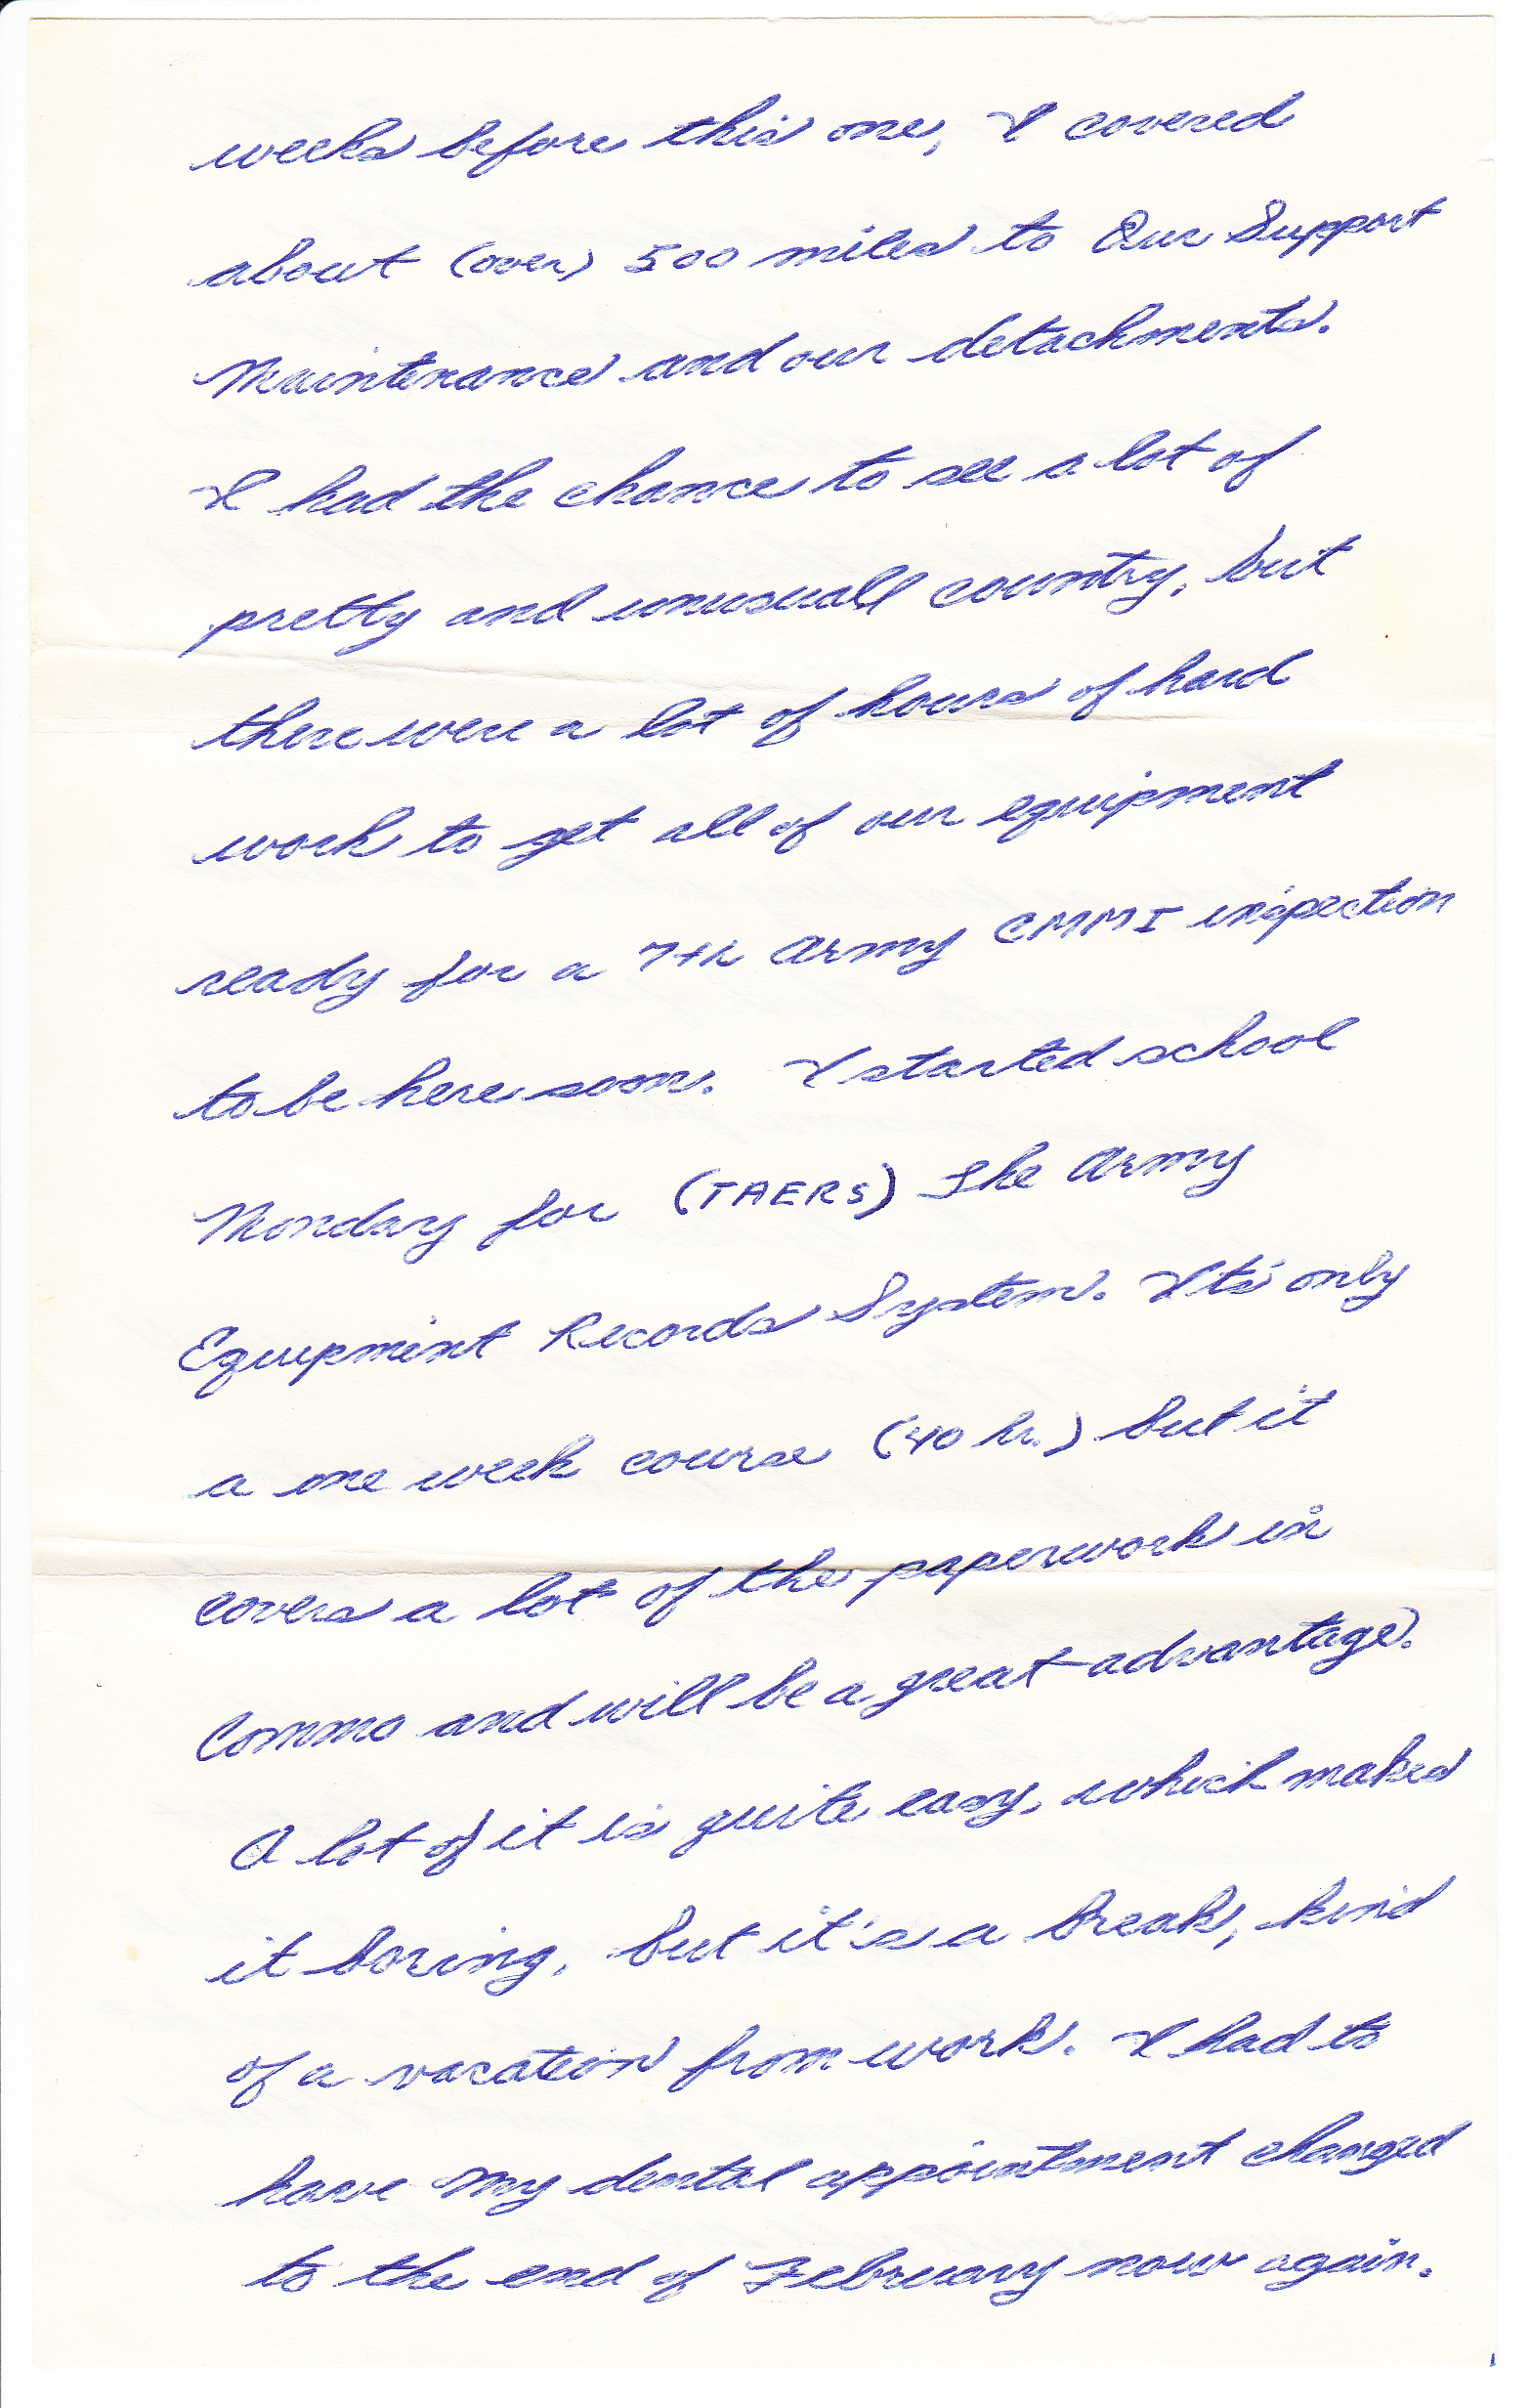 weeks before this one, I covered
about (over) 500 miles to Our Support
Maintenance and our detachments.
I had the chance to see a lot of
pretty and unusuall country, but
there were a lot of hours of hard
work to get all of our equipment
ready for a 7th Army CMMI inspection
to be here soon. I started school
Monday for (TAERS) The Army
Equipment Records System. Its only
a one week course (40 hr.) but it
covers a lot of the paperwork in
Commo and will be a great advantage.
A lot of it is quite easy, which makes
it boring, but it's a break, kind
of a vacation from work. I had to
have my dental appointment changed
to the end of February now again.